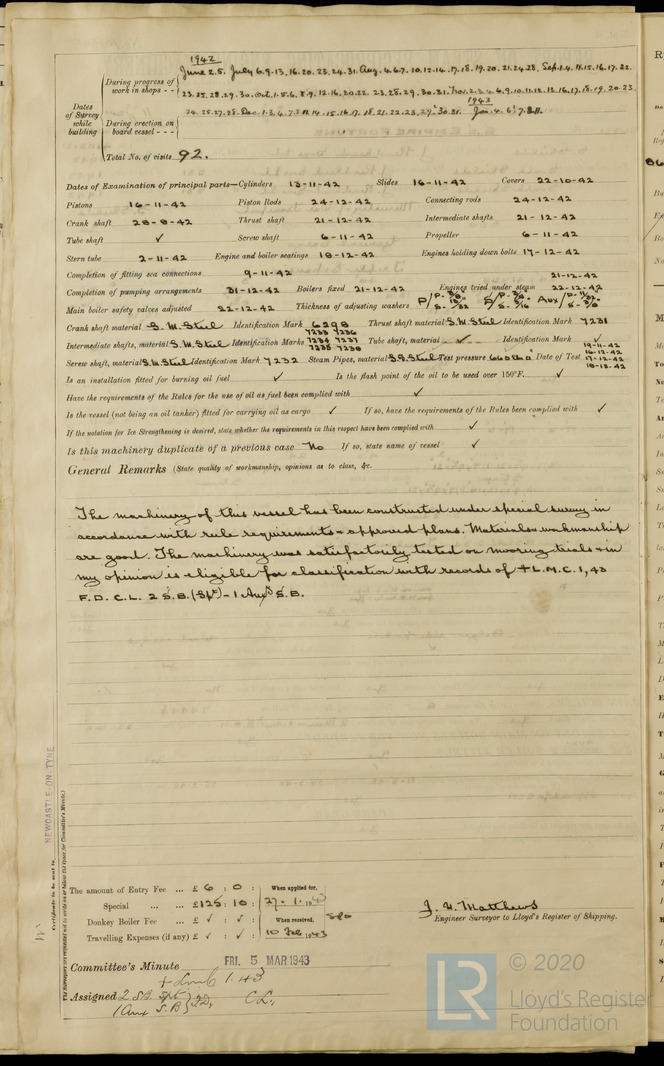 1942
During progress of work in shops - - June 2.5. July 6.9.13.16.20.23.24.31. Aug. 4.6.7.10.12.14.17.18.19.20.21.24.28. Sep. 1.4.11.15.16.17.22.
23.25.28.29.30. Oct. 1.5.6.8.9.12.16.20.22.23.28.29.30.31. Nov. 2.3.4.6.9.10.11.12.13.16.17.18.19.20.23
1943
Dates of Survey while building
During erection on board vessel - - -
24.25.27.28. Dec. 1.3.4.7.8.11.14.15.16.17.18.21.22.23.29.30.31. Jan. 4.6.7.8.11.
Total No. of visits 92.
Dates of Examination of principal parts—Cylinders 13-11-42 Slides 16-11-42 Covers 22-10-42
Pistons 16-11-42 Piston Rods 24-12-42 Connecting rods 24-12-42
Crank shaft 28-8-42 Thrust shaft 21-12-42 Intermediate shafts 21-12-42
Tube shaft ✓ Screw shaft 6-11-42 Propeller 6-11-42
Stern tube 2-11-42 Engine and boiler seatings 18-12-42 Engines holding down bolts 17-12-42
Completion of fitting sea connections 9-11-42
Completion of pumping arrangements 31-12-42 Boilers fixed 21-12-42 Engines tried under steam 21-12-42 22-12-42
Main boiler safety valves adjusted 22-12-42 Thickness of adjusting washers
Crank shaft material S.M. Steel Identification Mark 6298 Thrust shaft material S.M. Steel Identification Mark 7231
Intermediate shafts, material S.M. Steel Identification Marks 7233 7236 7234 7237 7235 7238 Tube shaft, material ✓ Identification Mark ✓
Screw shaft, material S.M. Steel Identification Mark 7232 Steam Pipes, material S.D. Steel Test pressure 660 lbs □ Date of Test
Is an installation fitted for burning oil fuel ✓ Is the flash point of the oil to be used over 150°F. ✓
Have the requirements of the Rules for the use of oil as fuel been complied with ✓
Is the vessel (not being an oil tanker) fitted for carrying oil as cargo ✓ If so, have the requirements of the Rules been complied with ✓
If the notation for Ice Strengthening is desired, state whether the requirements in this respect have been complied with ✓
Is this machinery duplicate of a previous case No If so, state name of vessel ✓
General Remarks (State quality of workmanship, opinions as to class, &c.
The machinery of this vessel has been constructed under special survey in
accordance with rule requirements & approved plans. Materials & workmanship
are good. The machinery was satisfactorily tested on mooring trials & in
my opinion is eligible for classification with records of + L.M.C. 1,43
F.D. C.L. 2 S.B. (Spt) - 1 Auxy S.B.
NEWCASTLE-ON-TYNE
Certificate to be sent to
The amount of Entry Fee ... £ 6 : 0 : When applied for,
Special ... £125 : 10 : 27. 1. 1943
Donkey Boiler Fee ... £ ✓ : ✓ : When received,
Travelling Expenses (if any) £ ✓ : ✓ : 10 Feb 1943
J. H. Matthews
Engineer Surveyor to Lloyd's Register of Shipping.
Committee's Minute FRI. 5 MAR 1943
+ Lmc 1.43
Assigned 2 SB Spt F.D. C.L.
1 Aux S.B
LR
© 2020
Lloyd's Register
Foundation